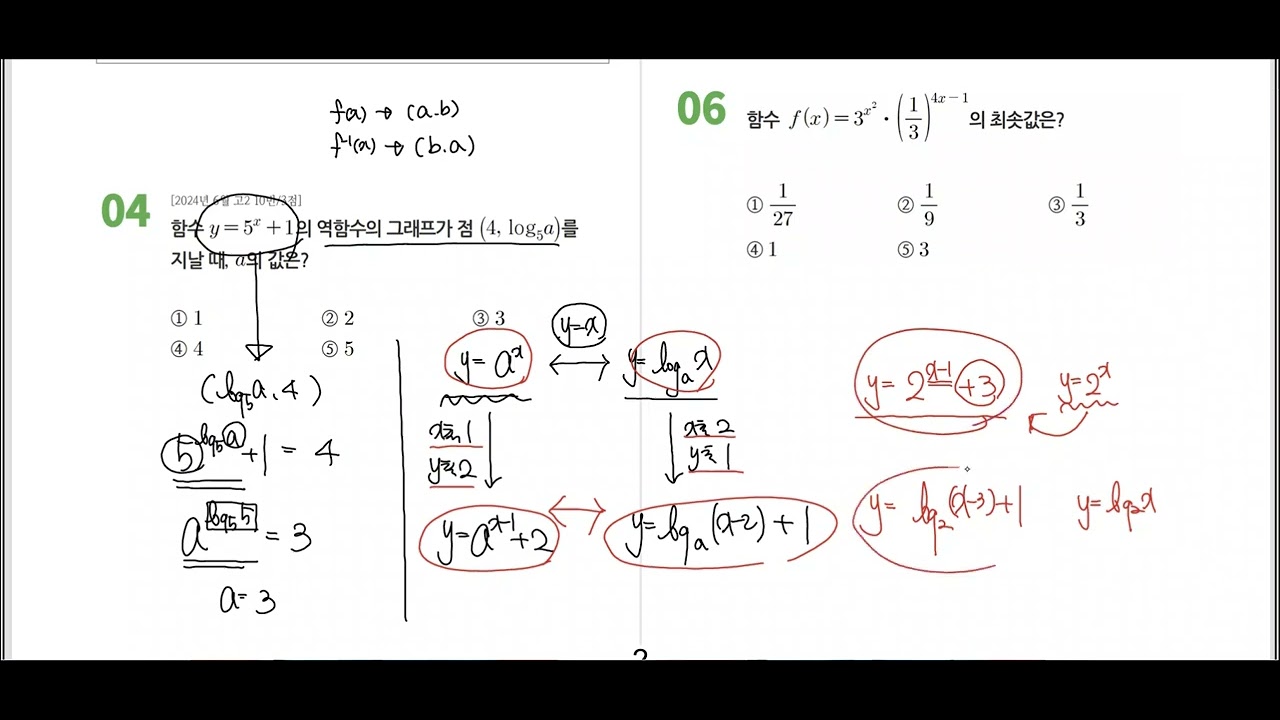 f(a) → (a.b)
f⁻¹(a) → (b.a)
04
[2024년 6월 고2 10번/3점]
함수 y=5ˣ+1의 역함수의 그래프가 점 (4, log₅a)를
지날 때, a의 값은?
① 1 ② 2 ③ 3
④ 4 ⑤ 5
(log₅a, 4)
5^(log₅a)+1 = 4
a^(log₅5) = 3
a=3
y=x
y=aˣ ↔ y=logₐx
x축 1
y축 2
x축 2
y축 1
y=a^(x-1)+2 ↔ y=logₐ(x-2)+1
06
함수 f(x)=3^(x²)·(1/3)^(4x-1)의 최솟값은?
① 1/27 ② 1/9 ③ 1/3
④ 1 ⑤ 3
y=2^(x-1)+3 y=2ˣ
y=log₂(x-3)+1 y=log₂x